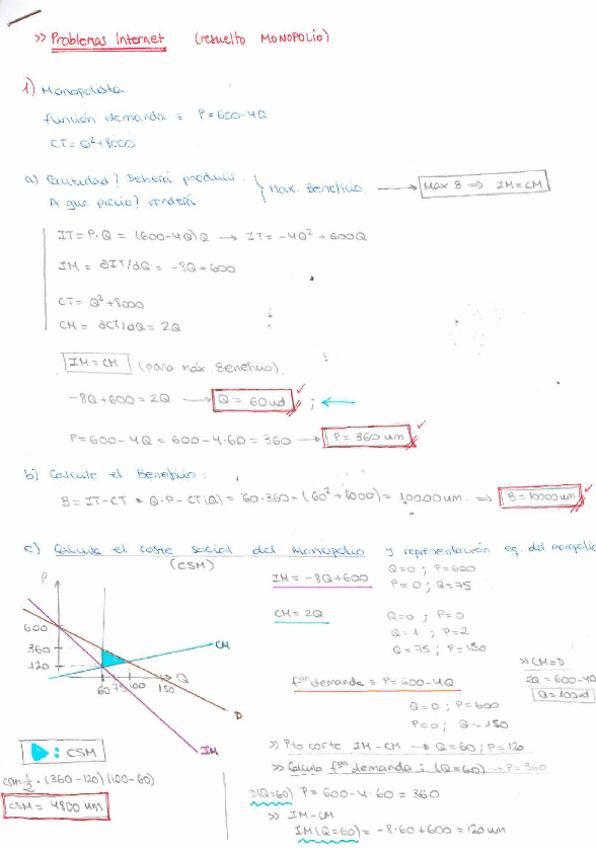 >> Problemas Internet (resuelto MONOPOLIO)
1) Monopolista
función demanda = P=600-4Q
CT= Q²+8000
a) Cantidad? Deberá producir.
A que precio? venderá
Max. Beneficio. → Max B => IM=CM
IT=P.Q = (600-4Q)Q → IT= -4Q²+600Q
IM = ∂IT/∂Q = -8Q+600
CT= Q²+8000
CM = ∂CT/∂Q = 2Q
IM=CM (para Máx. Beneficio).
-8Q+600=2Q → Q = 60ud ; ←
P=600-4Q=600-4.60=360 → P=360 um
b) Calcule el Beneficio:
B= IT-CT = Q.P-CT(Q)= 60.360-(60²+8000)= 10000um. => B=10000um
c) Calcule el coste social del Monopolio y representación eq. del monopolio
(CSM)
IM= -8Q+600
Q=0 ; P=600
P=0 ; Q=75
CM=2Q
Q=0 ; P=0
Q=1 ; P=2
Q=75 ; P=150
>> CM=D
2Q=600-4Q
Q=100ud
P
600
360
120
60 75 100 150
Q
CM
D
IM
fᵒⁿ demanda = P=600-4Q
Q=0 ; P=600
P=0 ; Q=150
: CSM
CSM=½.(360-120)(100-60)
CSM= 4800 um
>> Pto corte IM-CM → Q=60 ; P=120
>> Calculo fᵒⁿ demanda ; (Q=60) → P=360
D(Q=60) P=600-4.60=360
>> IM-CM
IM(Q=60)= -8.60+600=120um